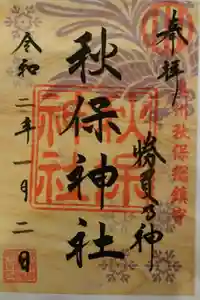 奉拝
秋保総鎮守
勝負の神
秋保神社
秋保神社
令和二年一月二日